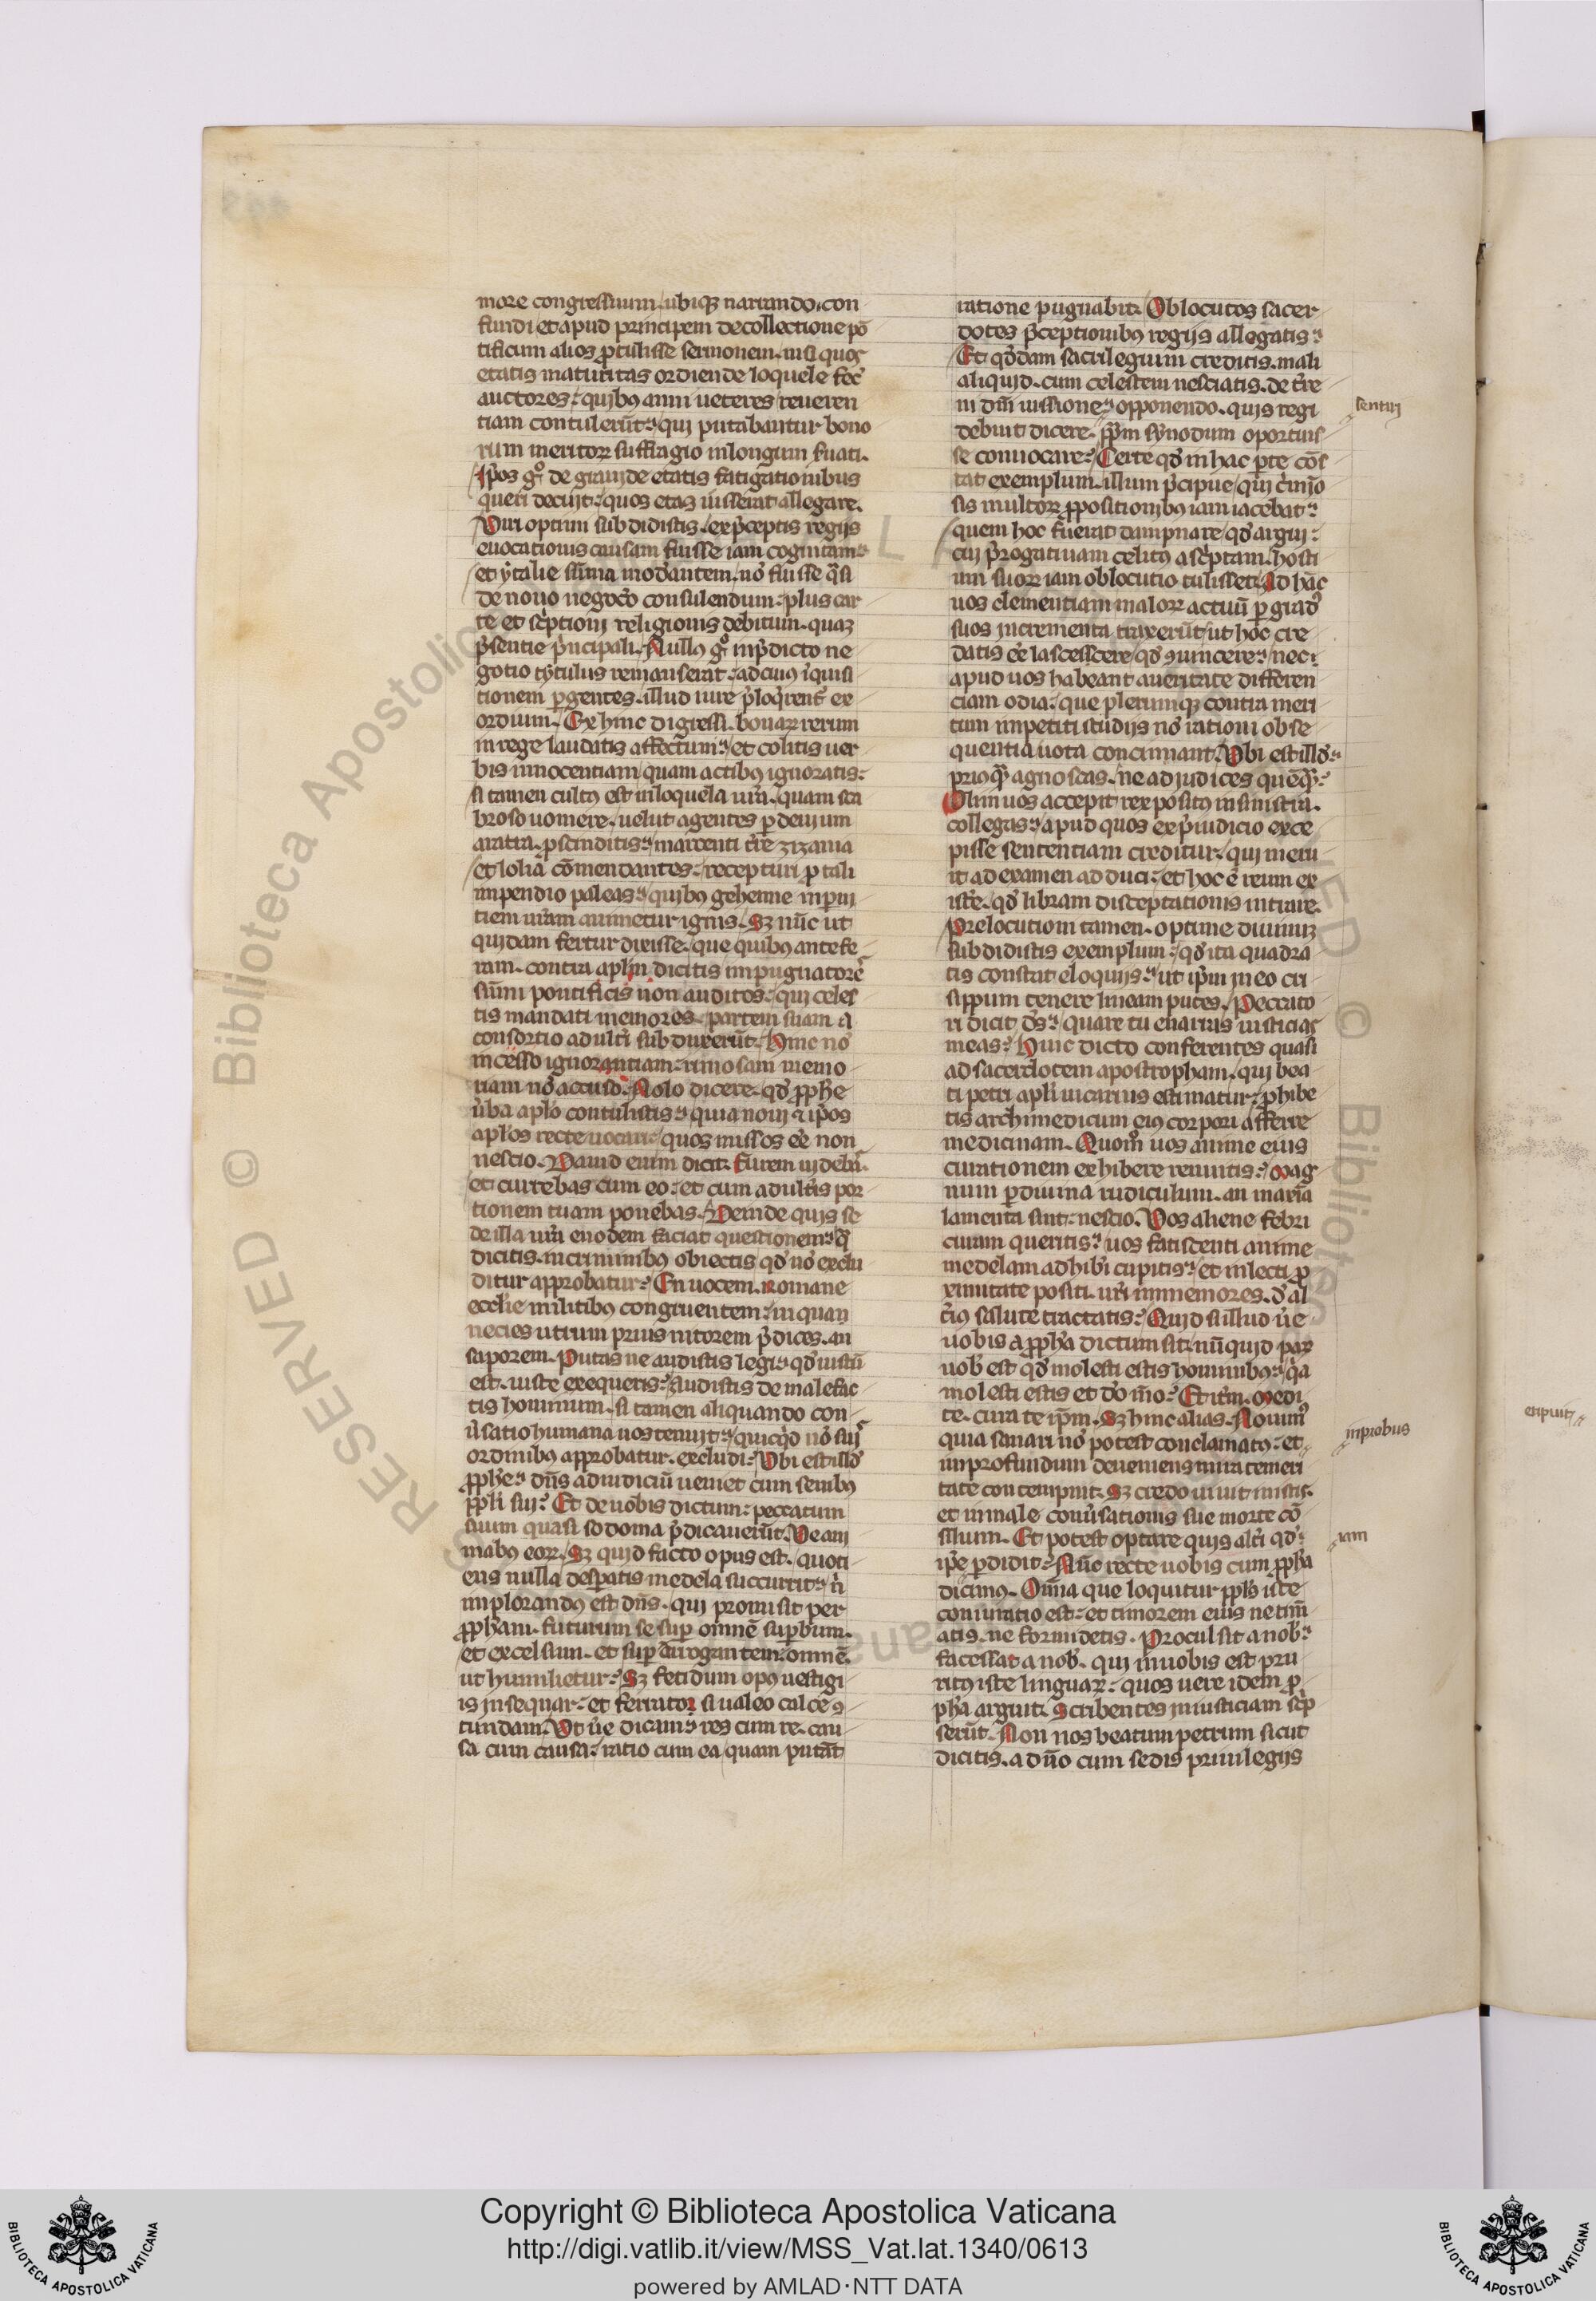 more congressuum. ubiq3 narrando. con
fundi et apud principem de collectione pō
tificum alios ꝓtulisse sermonem. nisi quos
etatis maturitas ordiende loquele fec̄
auctores. quibꝰ anni ueteres reueren
tiam contulerūt. qui putabantur bono
rum meritoꝝ suffragio in longum seruati.
Ip̄os gͦ de grauide etatis fatigationibus
queri decuit. quos etas iusserat allegare.
Viri optimi subdidistis. ex p̄ceptis regijs
euocationis causam fuisse iam cognitam
et ytalie sūma moderantem. nō fuisse q̄si
de nouo negocio consulendum. plus car
te et sc̄ptioni religionis debitum. quaꝫ
p̄sentie p̄ncipali. Nullꝰ gͦ in p̄dicto ne
gotio tytulus remanserat. ad cuius īquisi
tionem ꝑgentes. illud iure p̄loq̄rent᷑ ex
ordium. Ex hinc digressi. bonaꝝ rerum
in rege laudatis affectum. et colitis uer
bis innocentiam quam actibꝰ ignoratis.
si tamen cultꝰ est in loquela ur̄a. quam sca
broso uomere. uelut agentes ꝑ deuium
aratra. ꝓscinditis. marcenti t̄re zizania
et lolia cōmendantes. recepturi ꝓ tali
impendio paleas. quibꝰ gehenne in ꝑni
tiem ur̄am animetur ignis. Sꝫ nūc ut
quidam fertur dixisse. que quibꝰ antefe
ram. contra apl̄m dicitis impugnatorē
sūmi pontificis non auditos. qui celes
tis mandati memores. partem suam a
consortio adult̄i subduxerūt. Hinc nō
incesso ignorantiam. rimosam memo
riam nō accuso. Nolo dicere. qd̄ ꝓph̄e
ūba aplo contulistis. quia noui et ip̄os
apl̄os recte uocari. quos missos eē non
nescio. Dauid enim dicit. furem uidebas.
et currebas cum eo. et cum adult̄is por
tionem tuam ponebas. Deinde quis se
de illa ur̄i enodem faciat questionem. q̄
dicitis. in criminibꝰ obiectis qd̄ nō exclu
ditur approbatur. En uocem. Romane
eccl̄ie militibꝰ congruentem. in quam
necies utrum prius nitorem p̄dices. an
saporem. Putas ne audistis legi. qd̄ iustū
est. iuste exequeris. Audistis de malefac
tis hominum. si tamen aliquando con
ūsatio humana uos tenuit. quicq̄d nō sui
ordinibꝰ approbatur. excludi. Vbi est illd̄
ꝓph̄e. dn̄s ad iudiciū ueniet cum senibꝰ
ppl̄i sui. Et de uobis dictum. peccatum
suum quasi sodoma p̄dicauerūt. Ve ani
mabꝰ eoꝝ. Sꝫ quid facto opus est. quoti
ens nulla desꝑatis medela succurrit. n̄
implorandꝰ est dn̄s. qui promisit per
ꝓph̄am. futurum se suꝑ omnē suꝑbum.
et excelsum. et suꝑ arrogantem. omnē
ut humilietur. Sꝫ fetidum opꝰ uestigi
is insequar. et ferrator si ualeo calce ꝯ
tundam. Vt ūe dicam. res cum re. cau
sa cum causa. ratio cum ea quam putāt
ratione pugnabit. Oblocutos sacer
dotes p̄ceptionibꝰ regijs allegatis.
Et qd̄dam sacrilegium creditis. mali
aliquid. cum celestem nesciatis. de t̄re
ni dn̄i iussione. opponendo. quis regi
sentirj
debuit dicere. ip̄m synodum oportuis
se conuocare. Certe qd̄ in hac ꝑte cōs
tat exemplum. illum p̄cipue qui c̄imīo
sis multoꝝ ꝓpositionibꝰ iam iacebat.
quem hoc fuerat dampnare qd̄ argui.
cui p̄rogatiuam celitꝰ asc̄ptam. hosti
um suoꝝ iam oblocutio tulisset. Ad hāc
uos clementiam maloꝝ actuū ꝑ gradꝰ
suos incrementa traxerūt. ut hoc cre
datis eē lascescere qd̄ ꝯuincere. nec.
apud uos habeant a ueritate differen
ciam odia. que plerumq3 contra meri
tum impetiti studijs nō rationi obse
quentia uota concinnant. Vbi est illd̄.
priusq̄ agnoscas. ne adiudices quēq̄.
Olim uos accepit rex positꝰ in sinistra.
collegas. apud quos ex p̄iudicio exce
pisse sententiam creditur. qui meru
it ad examen adduci. et hoc ē reum ex
iste. qd̄ libram disceptationis intrare.
Prelocutioni tamen. optime diuinuꝫ
subdidistis exemplum. qd̄ ita quadra
tis constat eloquijs. ut ip̄m in eo cri
sippum tenere lineam putes. Peccato
ri dicit dꝰs. quare tu enarras iusticias
meas. Huic dicto conferentes quasi
ad sacerdotem apostropham. qui bea
ti petri apl̄i uicarius estimatur. ꝓhibe
tis archimedicum eiꝰ corpori afferre
medicinam. Quom̄ uos anime eius
curationem exhibere renuitis. Mag
num ꝑ diuina ridiculum. an maria
lamenta sint. nescio. Vos aliene febri
curam queritis. uos fatiscenti anime
medelam adhib̄i cupitis. et in lecti ꝓ
ximitate positi. ur̄i immemores. d̄ al
t̄ius salute tractatis. Quid si illud ūe
uobis a ꝓph̄a dictum sit. nūquid par
uob̄ est qd̄ molesti estis hominibꝰ. q̄a
molesti estis et dō m̄o. Et it̄m. Medi
ce. cura te ip̄m. Sꝫ hinc alias. Nouimꝰ
quia sanari nō potest conclamatꝰ. et
inprobus
in profundum deueniens mira temeri
tate contempnit. Sꝫ credo uiuit iustis.
et in male conūsationis sue morte cō
silium. Et potest optare quis alt̄i qd̄.
iam
ip̄e ꝑdidit. Nūc recte uobis cum ꝓph̄a
dicimꝰ. Om̄ia que loquitur ppl̄s iste
coniuratio est. et timorem eius ne tim̄
atis. ne formidetis. Procul sit a nob̄.
facessat a nob̄. qui in uobis est pru
ritꝰ iste linguaꝝ. quos uere idem ꝓ
pha arguit. Scribentes iniusticiam sc̄p
serūt. Non nos beatum petrum sicut
dicitis. a dn̄o cum sedis priuilegijs
eripuit
Copyright © Biblioteca Apostolica Vaticana
http://digi.vatlib.it/view/MSS_Vat.lat.1340/0613
powered by AMLAD·NTT DATA
BIBLIOTECA APOSTOLICA VATICANA
BIBLIOTECA APOSTOLICA VATICANA